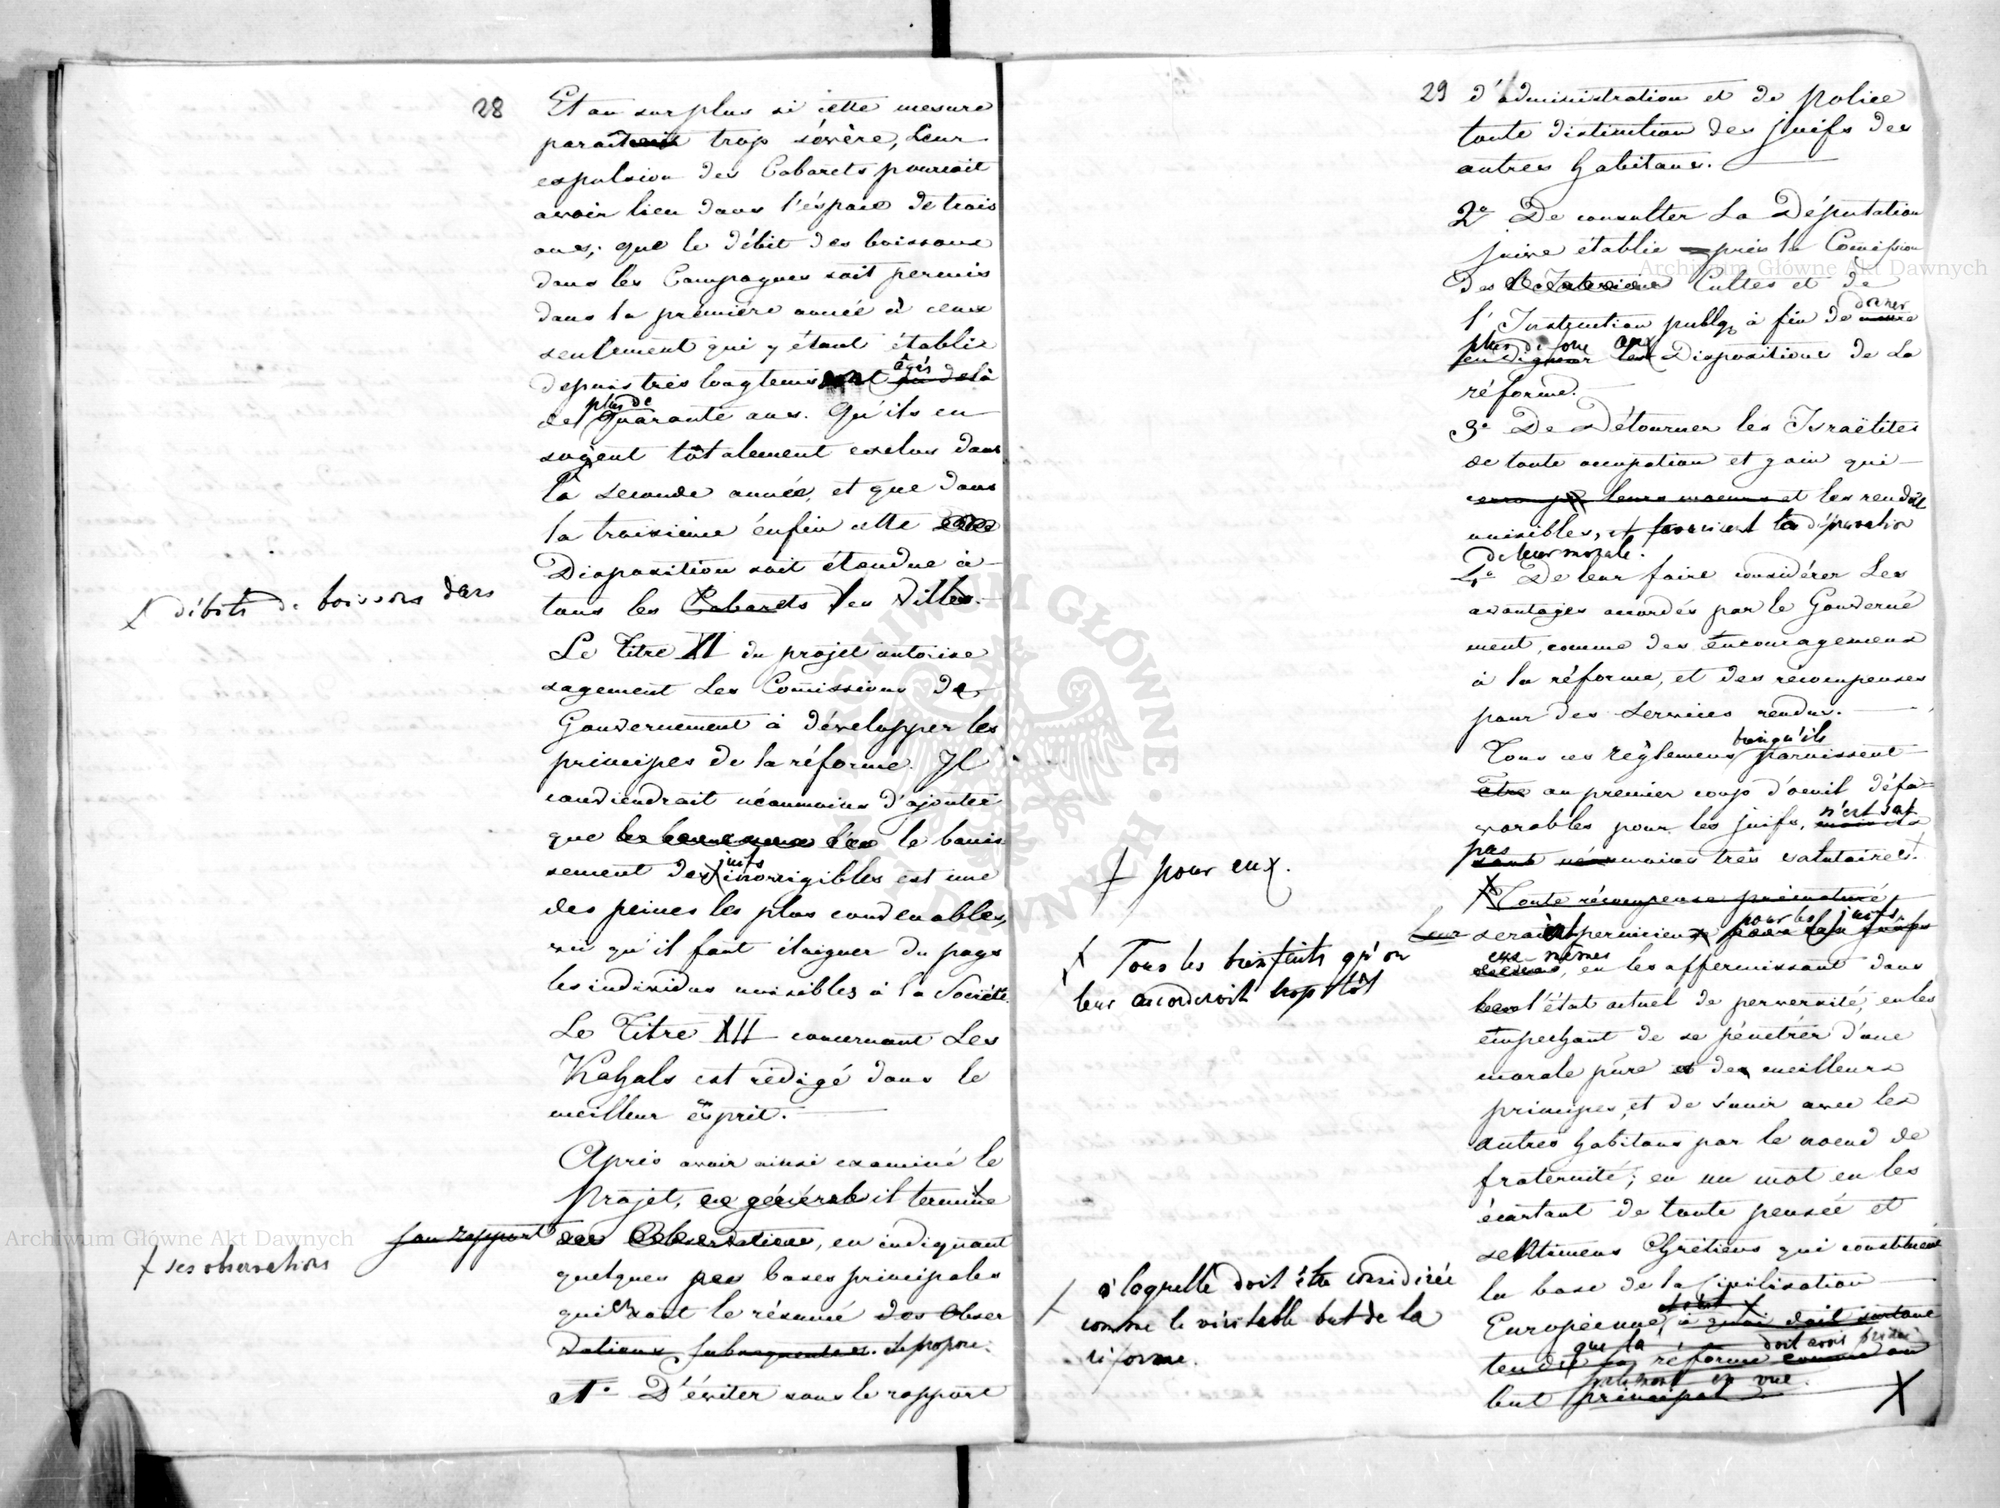 28
Et au surplus si cette mesure
paraît trop sévère, leur
expulsion des Cabarets pourrait
avoir lieu dans l'éspace de trois
ans; que le débit des boissons
dans les Campagnes soit permis
dans la première année à ceux
seulement qui y étant établis
depuis très longtems sont âgés au delà
de plus de quarante ans. Qu'ils en
soyent tôtalement exclus dans
la seconde année, et que dans
la troisième énfin cette
Disposition soit étendue à
tous les Cabarets des Villes.
† débits de boissons dans
Le Titre XI du projet autorise
sagement les Comissions de
Gouvernement à développer les
principes de la réforme. Il
conviendrait néanmoins d'ajouter
que le banis
sement des juifs incorrigibles est une
des peines les plus convenables,
vu qu'il faut éloigner du pays
les individus nuisibles à la Société.
Le Titre XII concernant les
Kahals est rédigé dans le
meilleur ésprit.
Après avoir ainsi examiné le
Projet, en général il termine
son rapport ses Observations, en indiquant
† ses observations
quelques bases principales
qui en sont le résumé des Obser
vations subsequentes. il propose:
1° D'éviter sous le rapport
29
d'administration et de Police
toute distinction des juifs des
autres habitans.
2° De consulter la Députation
juive établie près la Comission
des Cultes et de
l'Instruction publq. à fin de doner
plus de force aux Dispositions de la
réforme.
3° De Détourner les Israëlites
de toute occupation et gain qui
leurs moeurs et les rendent
nuisibles, et favorisent la dépravation
de leur morale.
4° De leur faire considérer les
avantages accordés par le Gouverne
ment, comme des éncouragemens
à la réforme, et des récompenses
pour des services rendus.
Tous ces règlemens bienqu'ils paroissent
être au premier coup d'oeuil défa-
vorables pour les juifs, n'est sont
pas néanmoins très salutaires.
† pour eux.
Toute récompense prématuré
† Tous les bienfaits qu'on
leur accorderoit trop tôt
seraient pernicieux pour les juifs
eux mêmes, en les affermissant dans
l'état actuel de perversité, en les
émpechant de se pénétrer d'une
morale pure et des meilleurs
principes, et de s'unir avec les
autres habitans par le noeud de
fraternité; en un mot en les
écartant de toute pensée et
sentimens Chrétiens qui constituent
la base de la Civilisation
Européenne, à quoi doit surtout
† à laquelle doit être considérée
comme le véritable but de la
réforme.
tendre la réforme comme au
but principal
Archiwum Główne Akt Dawnych
Archiwum Główne Akt Dawnych
ARCHIWUM GŁÓWNE AKT DAWNYCH